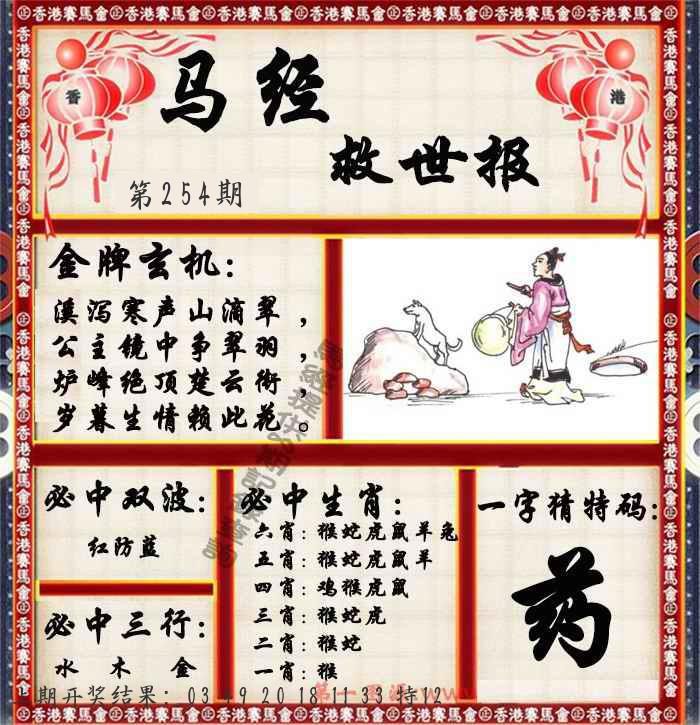 香港賽馬會
香 港
马经
救世报
第254期
金牌玄机：
溪泻寒声山滴翠，
公主镜中争翠羽，
炉峰绝顶楚云衔，
岁暮生情赖此花。
必中双波：
红防蓝
必中三行：
水 木 金
必中生肖：
六肖：猴蛇虎鼠羊兔
五肖：猴蛇虎鼠羊
四肖：鸡猴虎鼠
三肖：猴蛇虎
二肖：猴蛇
一肖：猴
一字猜特码：
药
期开奖结果：03 49 20 18 11 33 特12